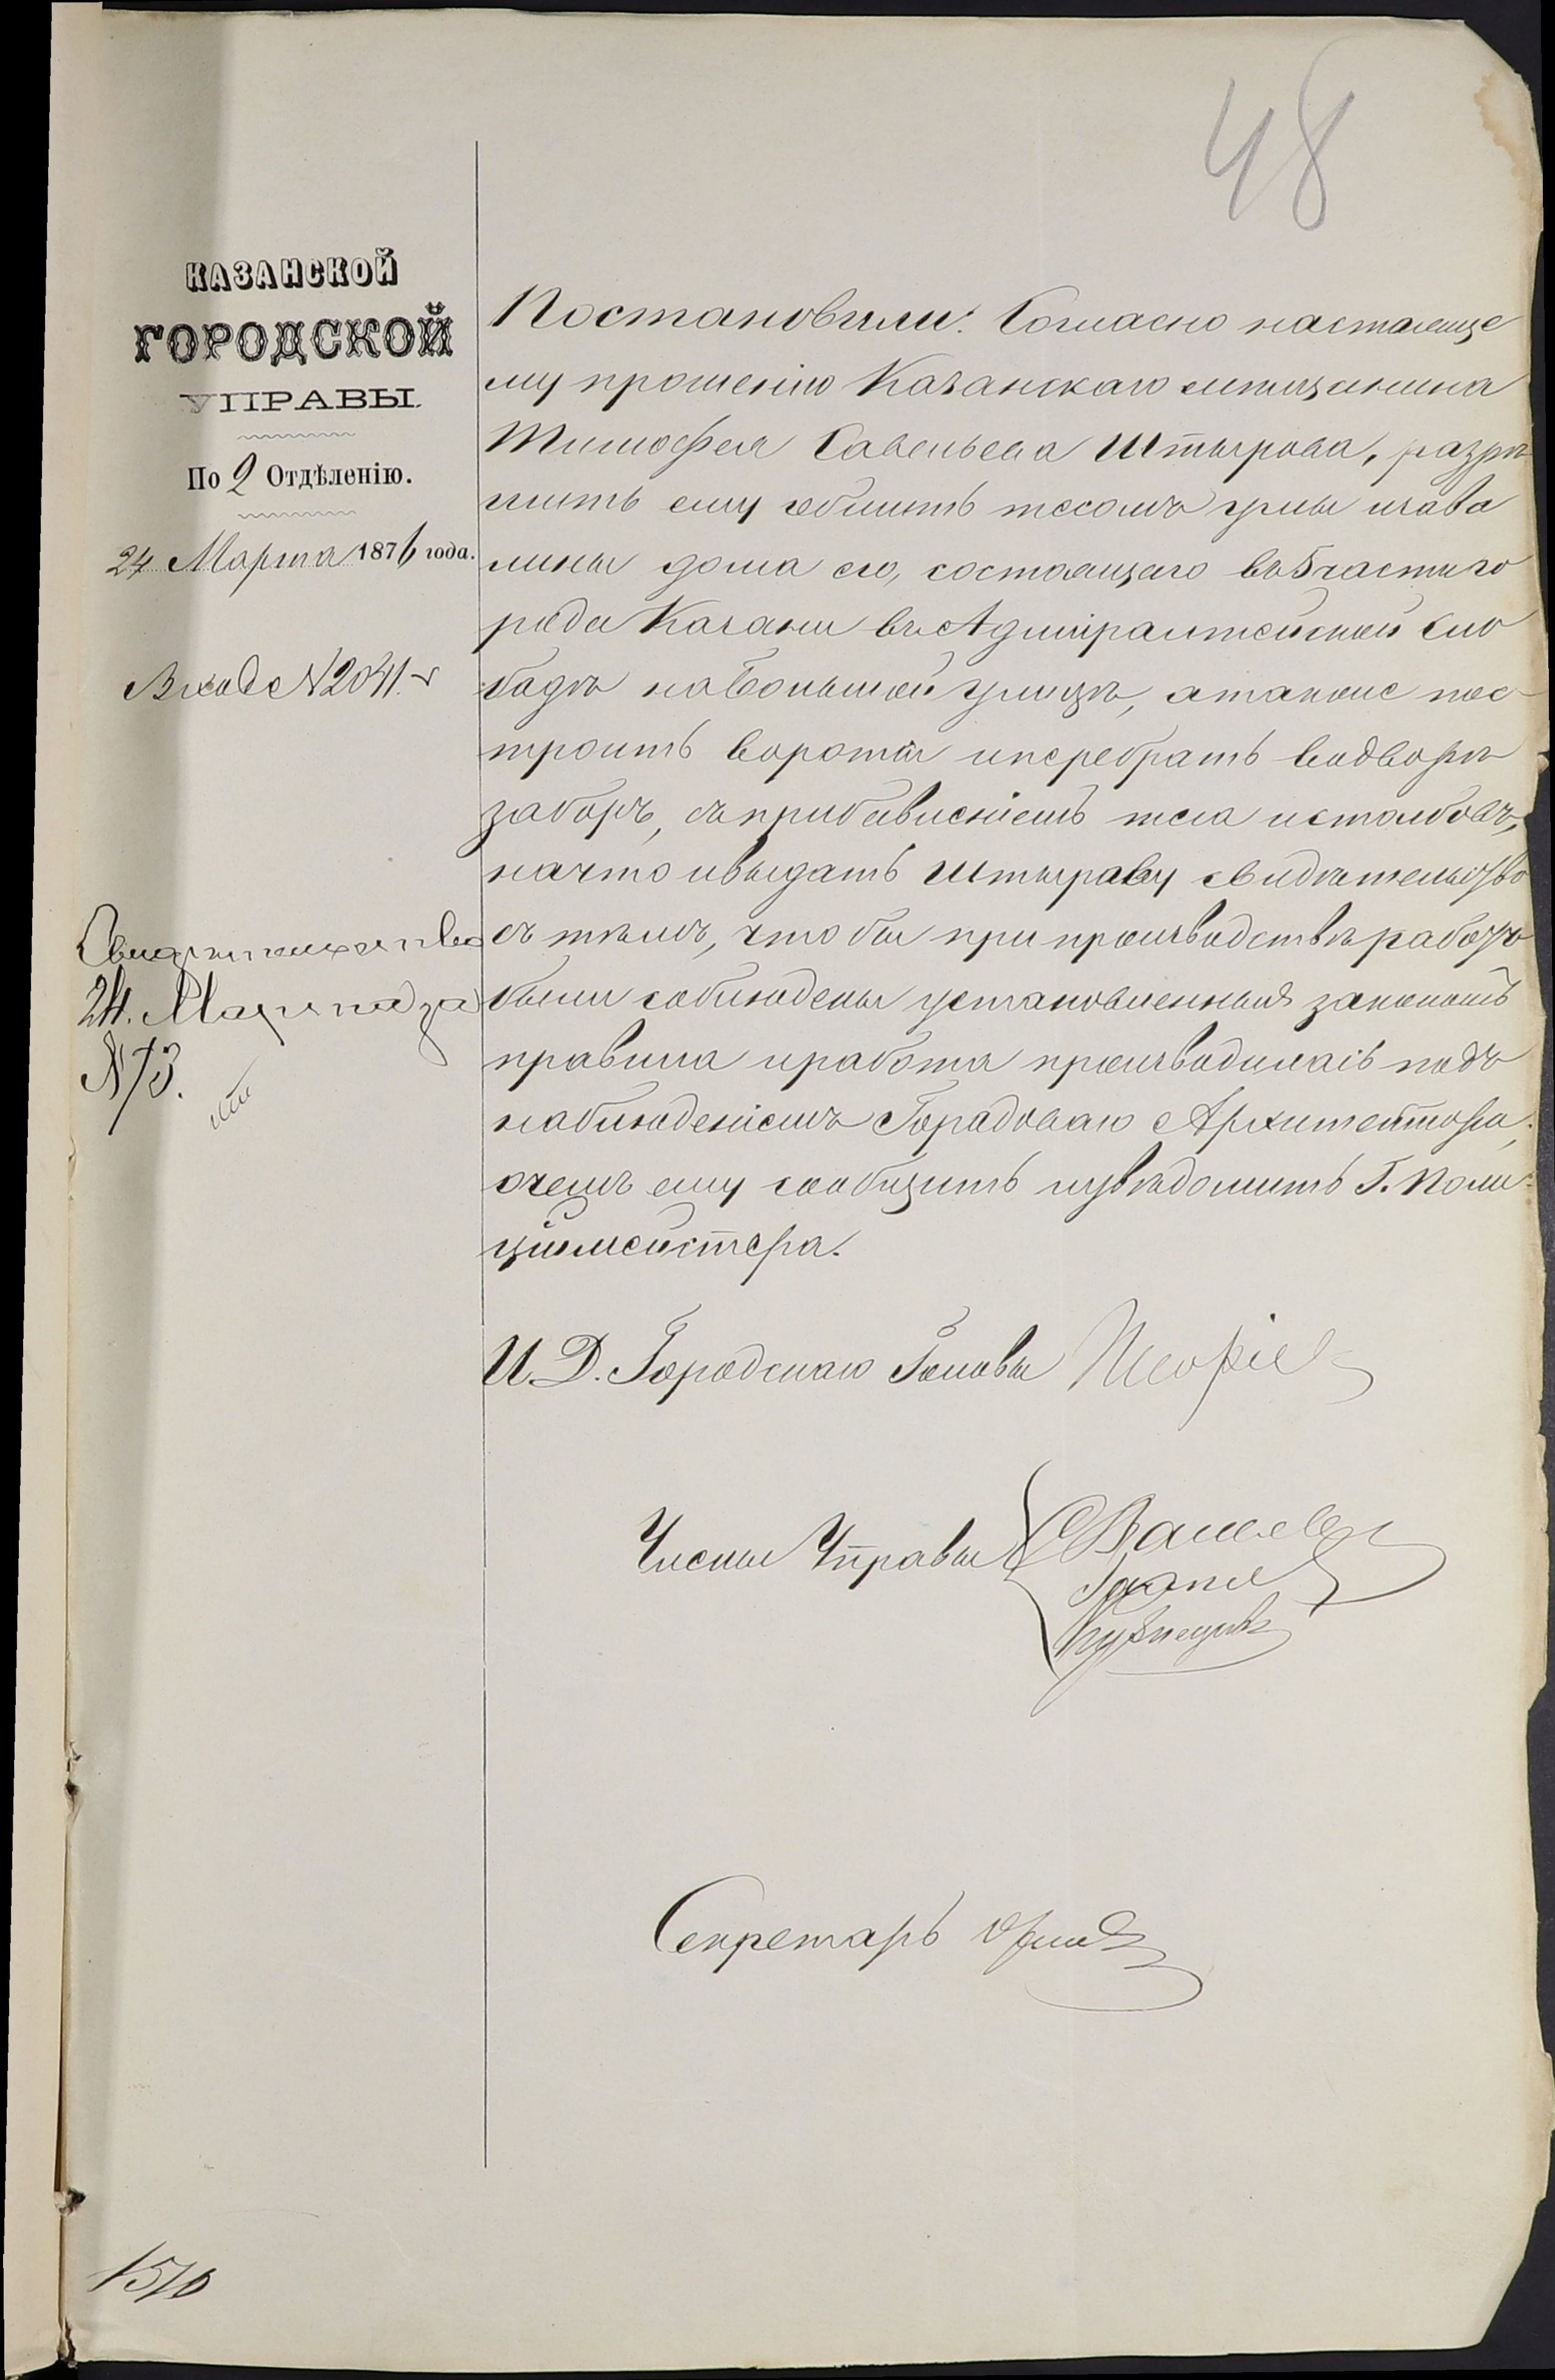 48
КАЗАНСКОЙ
ГОРОДСКОЙ
УПРАВЫ.
По 2 Отдѣленію.
24 Марта 1876 года.
Входе N 2041.
Свидѣтельство
24. Марта за
N 73.
Постановили: Согласно настояще
му прошенію Казанскаго мѣщанина
Тимофея Савельева Штырова, разрѣ
шить ему обшить тесомъ углы и зава
лины дома его, состоящаго въ 5 части го
рода Казани въ Адмиралтейской Сло
бодѣ на Большой улицѣ, а также пос
троить ворота и перебрать во дворѣ
заборъ, съ прибавленіемъ теса и столбовъ,
на что и выдать Штырову свидѣтельство
съ тѣмъ, что бы при производствѣ работъ
были соблюдены установленныя закономъ
правила и работа производилась подъ
наблюденіемъ Городоваго Архитектора,
о чемъ ему сообщить и увѣдомить Г. Поли
ціймейстера.
И. Д. Городскаго Головы
Члены Управы
Кузнецовъ
Секретарь
1510